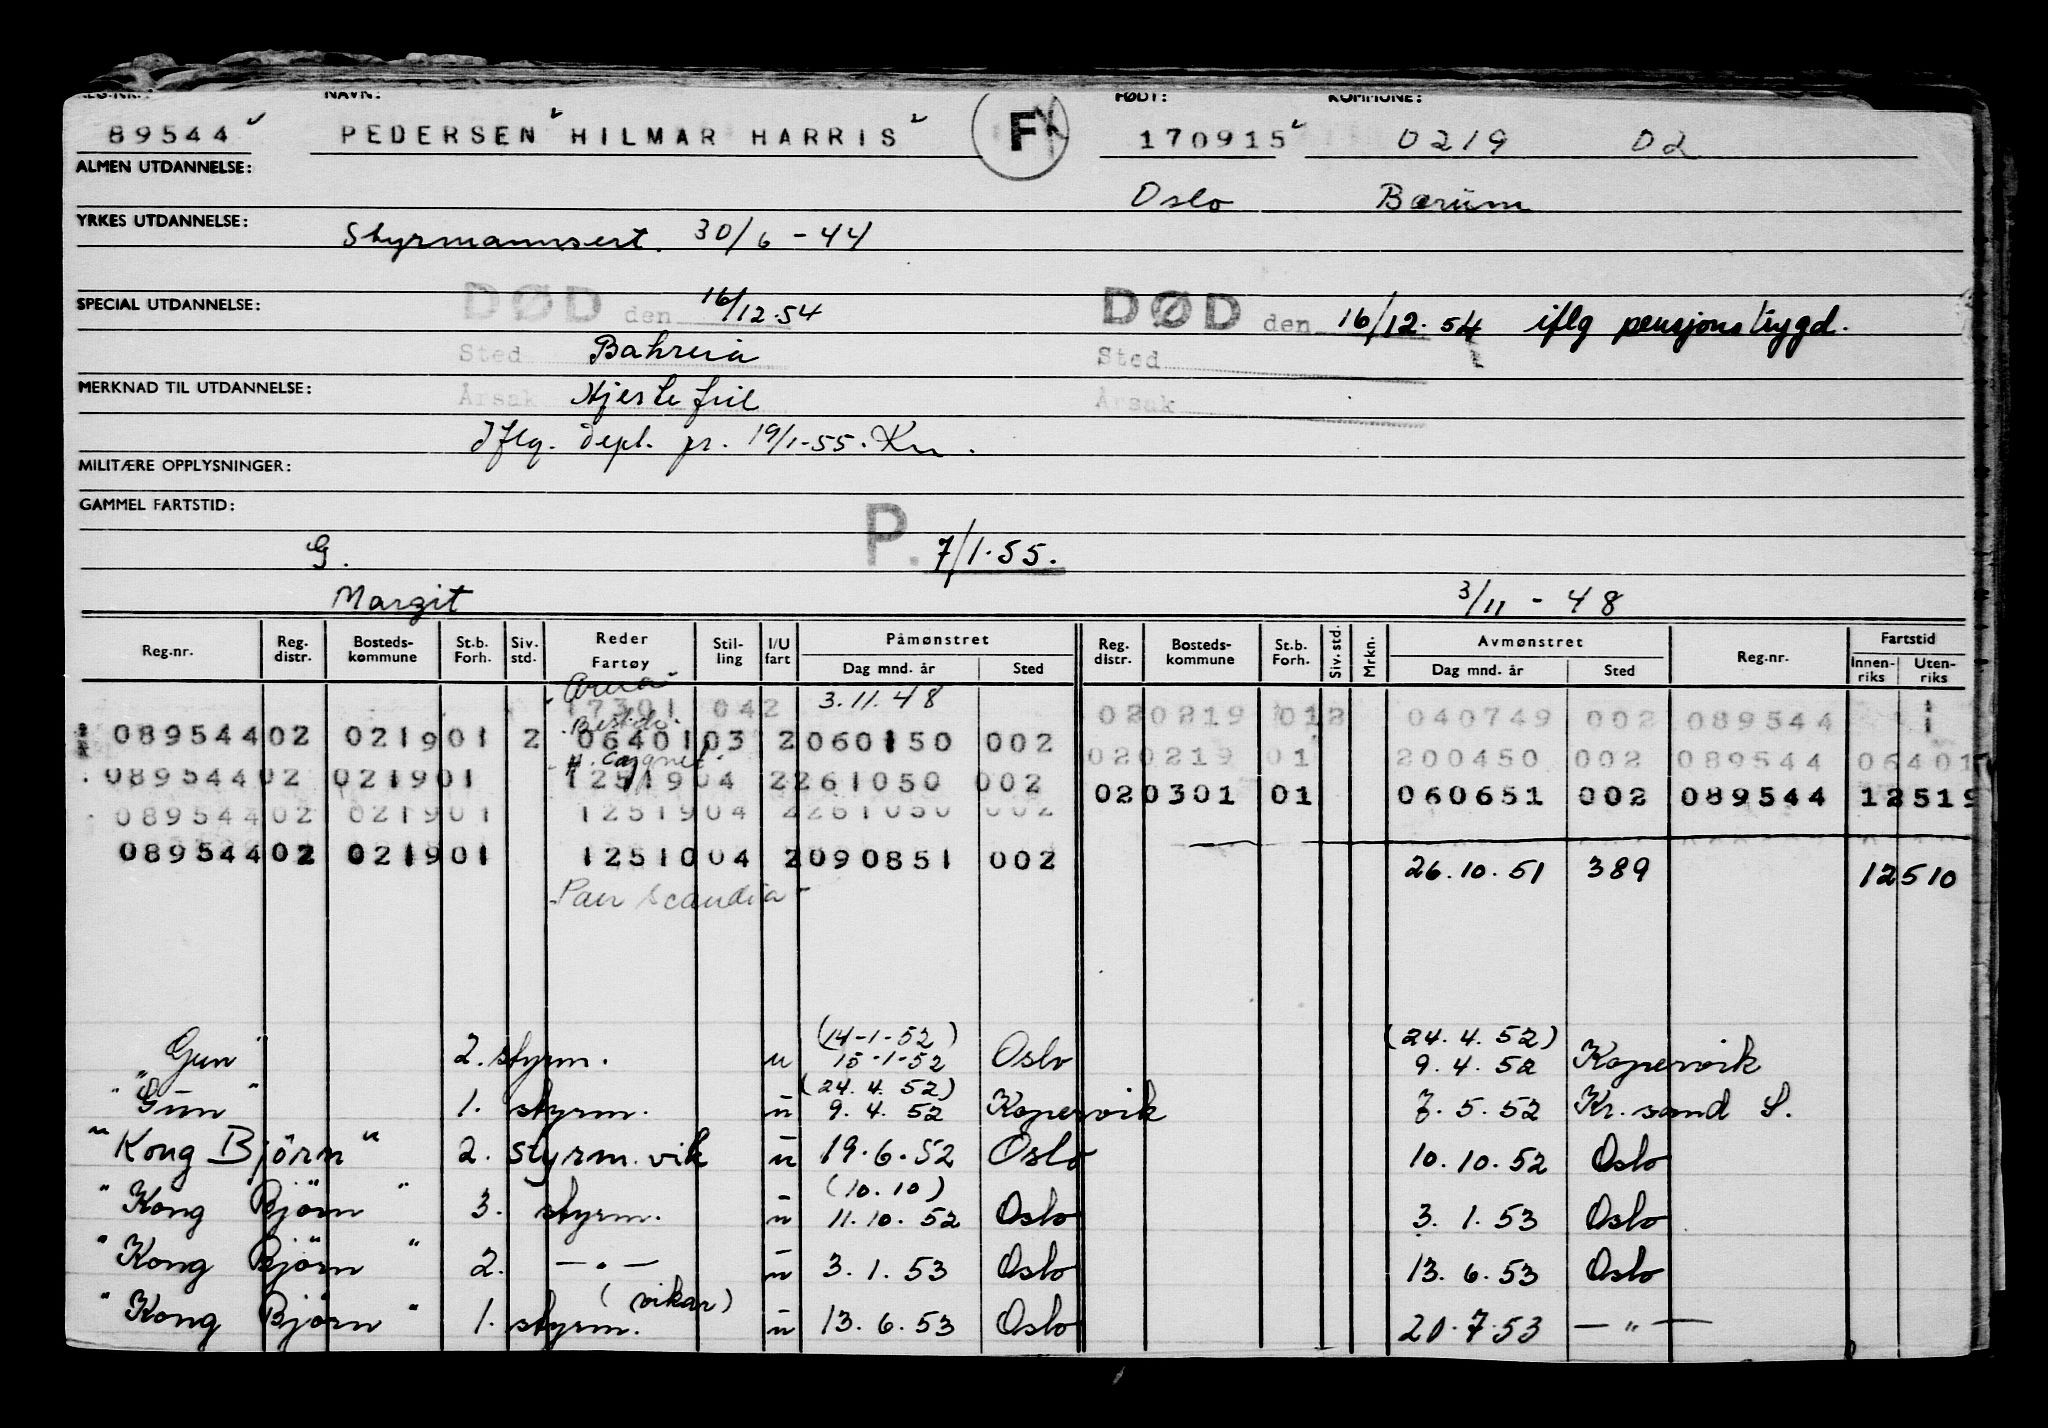 NAVN: FØDT: KOMMUNE:
89544 PEDERSEN HILMAR HARRIS F 170915 0219 02
ALMEN UTDANNELSE:
Oslo Bærum
YRKES UTDANNELSE:
Styrmannsert. 30/6 - 44
SPECIAL UTDANNELSE: DØD den 16/12.54 DØD den 16/12.54 iflg pensjonstrygd.
Sted Sted
MERKNAD TIL UTDANNELSE: Årsak Årsak
Iflg. dept. pr. 19/1-55.
MILITÆRE OPPLYSNINGER:
GAMMEL FARTSTID:
G. P. 7/1.55.
Margit 3/11 - 48
Reg.nr. Reg. distr. Bosteds-kommune St.b. Forh. Siv. std. Reder Fartøy Stil-ling I/U fart Påmønstret Dag mnd. år Sted Reg. distr. Bosteds-kommune St.b. Forh. Siv. std. Mrkn. Avmønstret Dag mnd. år Sted Reg.nr. Fartstid Innen-riks Uten-riks
17301 042 3.11.48 020219 012 040749 002 089544
089544 02 0219 01 2 0640103 2 060150 002
020219 01 200450 002 089544 06401
089544 02 0219 01 1251904 2 261050 002
020301 01 060651 002 089544 12519
089544 02 0219 01 1251904 2 261050 002
089544 02 0219 01 1251004 2 090851 002 26.10.51 389 12510
Pan Scandia
(14-1-52) (24.4.52)
"Gun" 2. styrm. u 15-1-52 Oslo 9.4.52 Kopervik
(24.4.52)
"Gun" 1. styrm. u 9.4.52 Kopervik 7.5.52 Kr.sand S.
"Kong Bjørn" 2. styrm. vik u 19.6.52 Oslo 10.10.52 Oslo
(10.10)
"Kong Bjørn" 3. styrm. u 11.10.52 Oslo 3.1.53 Oslo
"Kong Bjørn" 2. —"— u 3.1.53 Oslo 13.6.53 Oslo
(vikar)
"Kong Bjørn" 1. styrm. u 13.6.53 Oslo 20.7.53 —"—